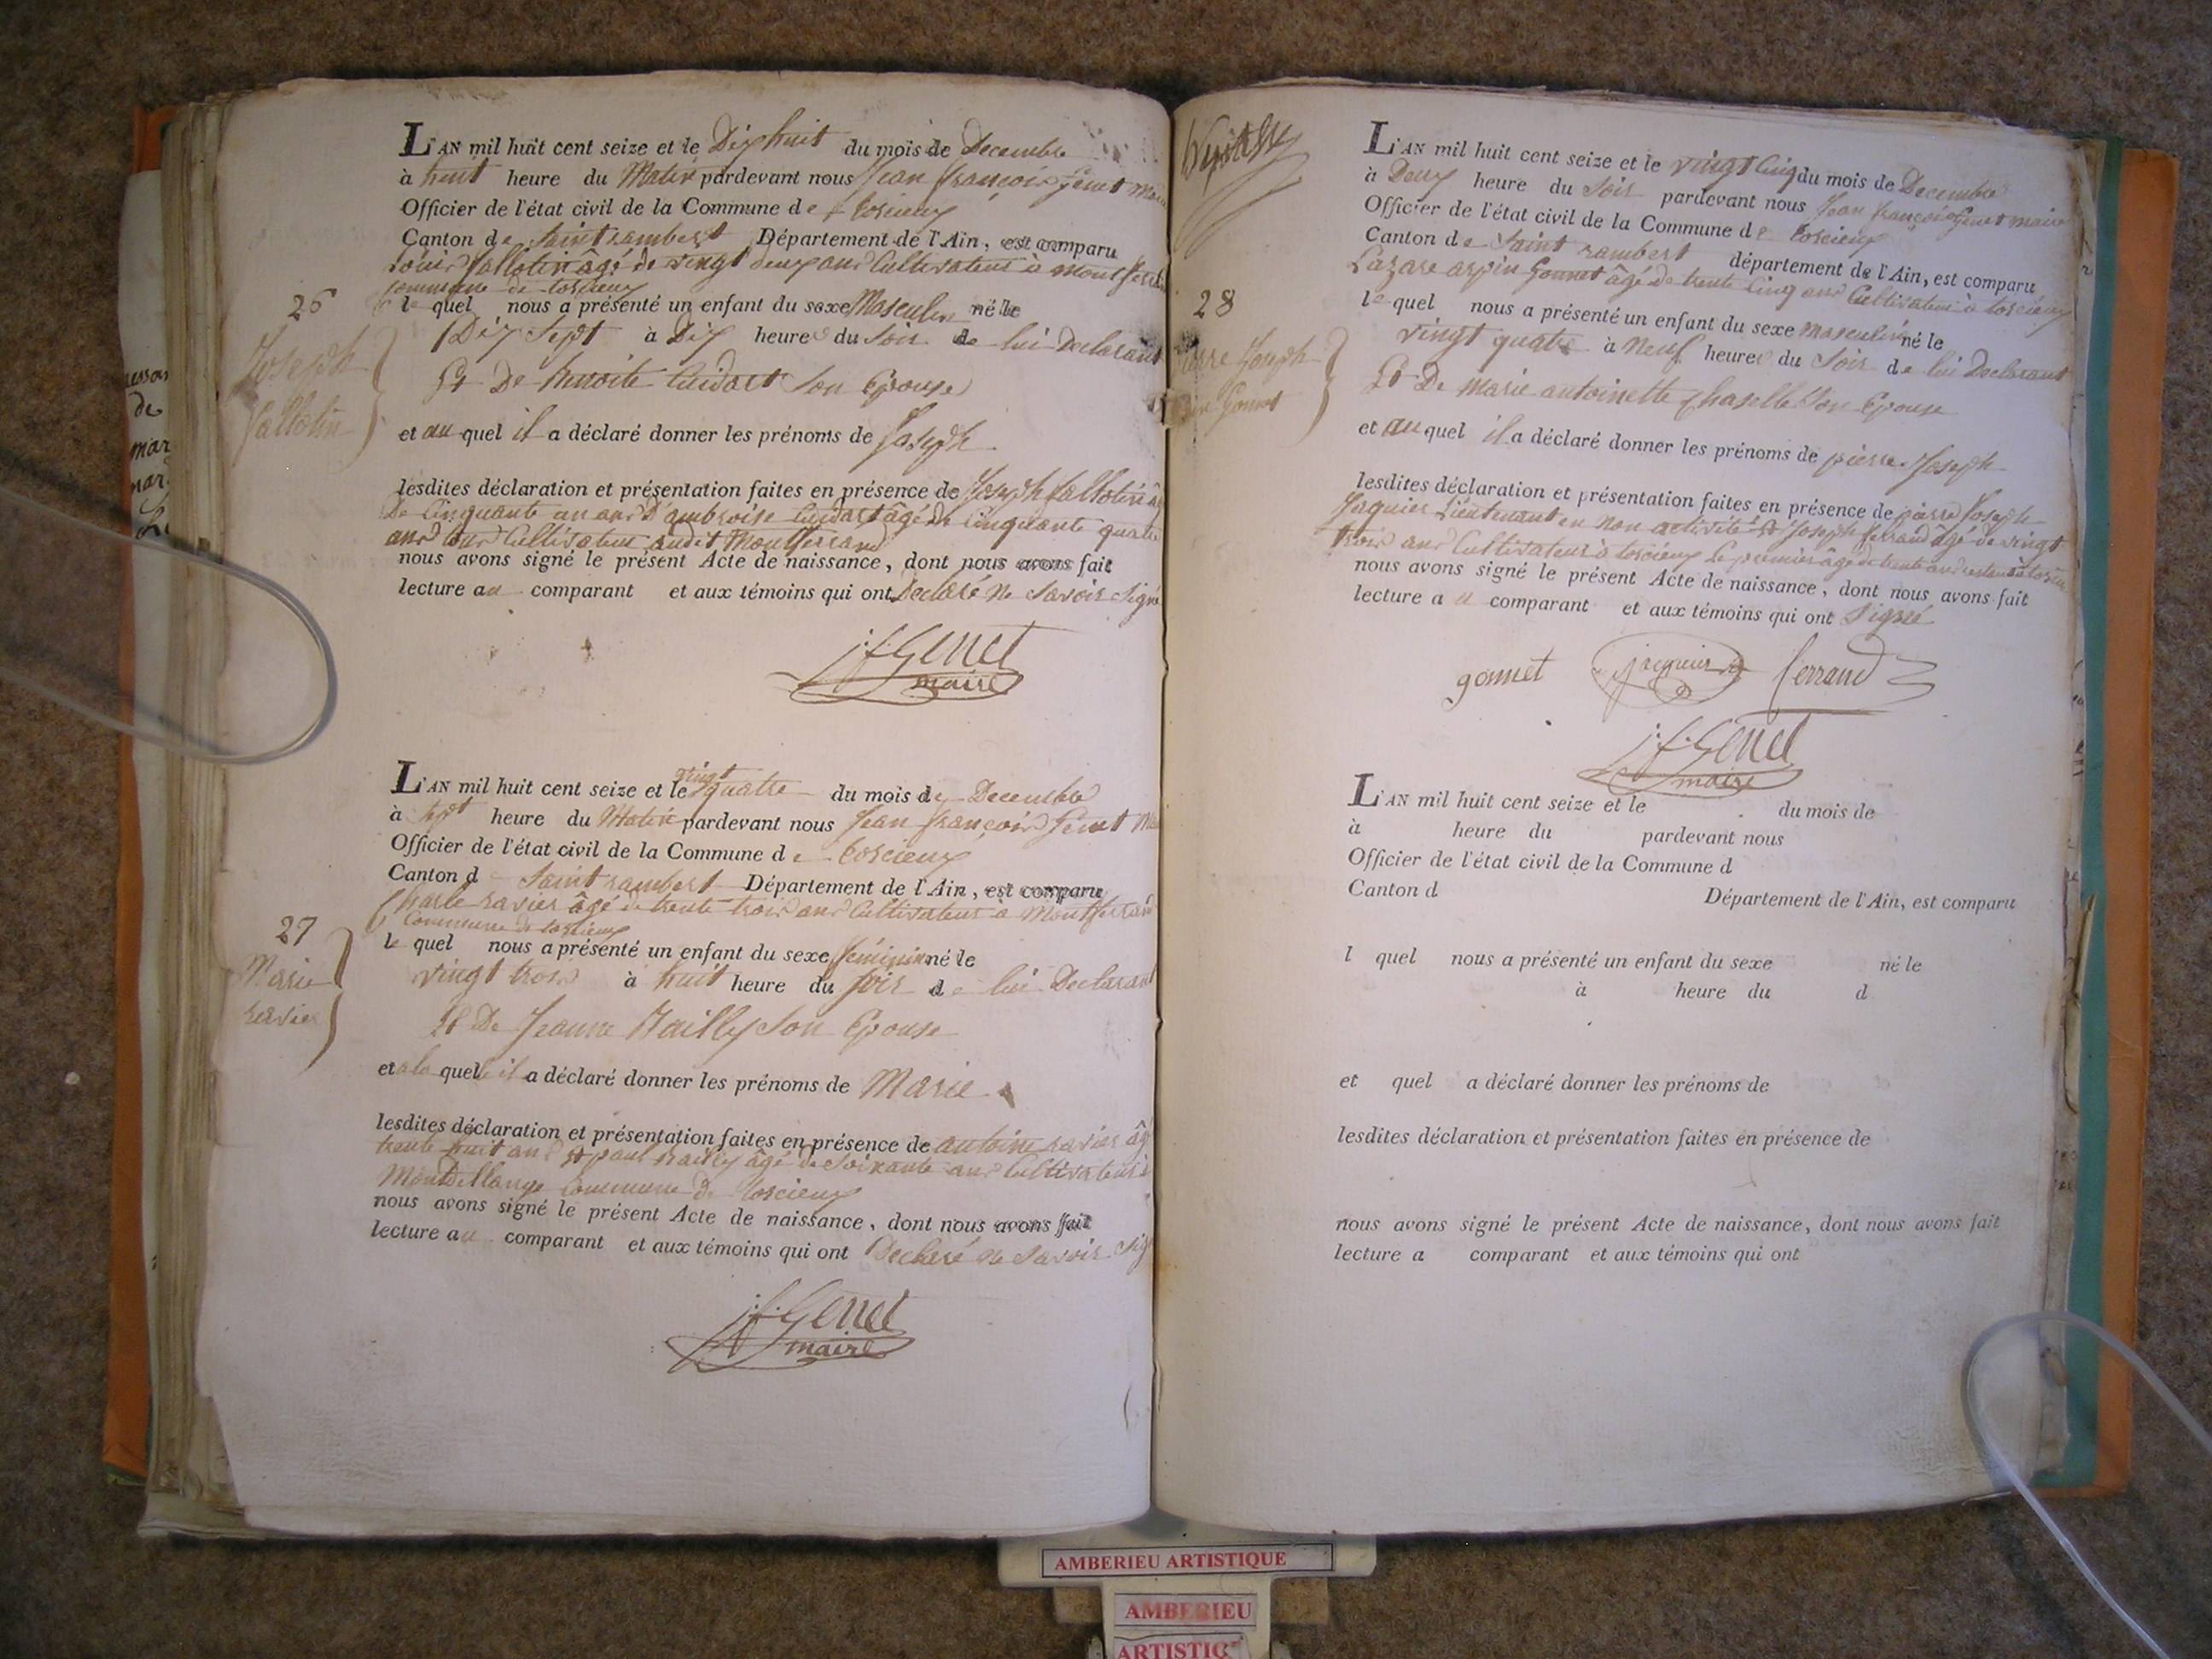 L'AN mil huit cent seize et le Dix huit du mois de Decembre
à huit heure du Matin pardevant nous Jean françois Genet Maire
Officier de l'état civil de la Commune de torcieux
Canton de Saint rambert Département de l'Ain, est comparu
Louis fallotin âgé de vingt deux ans Cultivateur à Mont ferrand
commune de torcieux
26
le quel nous a présenté un enfant du sexe Masculin né le
Dix Sept à Dix heures du Soir de lui Declarant
Et De benoite Cuidart Son Epouse
Joseph
fallotin
et au quel il a déclaré donner les prénoms de Joseph
lesdites déclaration et présentation faites en présence de Joseph fallotin âgé
De Cinquante un ans D'ambroise Cuidart âgé de Cinquante quatre
ans tous Cultivateur audit Montferrand
nous avons signé le présent Acte de naissance, dont nous avons fait
lecture au comparant et aux témoins qui ont Declaré Ne Savoir Signé
jf Genet
maire
L'AN mil huit cent seize et le vingt quatre du mois de Decembre
à Sept heure du Matin pardevant nous Jean françois Genet Maire
Officier de l'état civil de la Commune de torcieux
Canton d Saint rambert Département de l'Ain, est comparu
Charle ravier âgé de trente trois ans Cultivateur à Montferrand
Commune de torcieux
27
le quel nous a présenté un enfant du sexe féminin né le
vingt trois à huit heure du Soir de lui Declarant
Et De Jeanne Bailly Son Epouse
Marie
ravier
et a la quelle il a déclaré donner les prénoms de Marie
lesdites déclaration et présentation faites en présence de antoine ravier âgé
trente huit ans Et paul bailly âgé de Soixante ans Cultivateurs
Commune de torcieux
nous avons signé le présent Acte de naissance, dont nous avons fait
lecture au comparant et aux témoins qui ont Declaré ne Savoir Sig
jf Genet
maire
L'AN mil huit cent seize et le vingt Cinq du mois de Decembre
à Deux heure du Soir pardevant nous Jean françois Genet maire
Officier de l'état civil de la Commune de torcieux
Canton de Saint rambert département de l'Ain, est comparu
Lazare arpin Gonnet âgé de trente Cinq ans Cultivateur à torcieux
28
le quel nous a présenté un enfant du sexe masculin né le
vingt quatre à Neuf heures du Soir de lui Declarant
Et De Marie antoinette Chaselle Son Epouse
pierre Joseph
Gonnet
et au quel il a déclaré donner les prénoms de pierre Joseph
lesdites déclaration et présentation faites en présence de pierre Joseph
Jaquier Lieutenant en non activité Et Joseph ferrand âgé de vingt
trois ans Cultivateur à torcieux le premier âgé de trente ans
nous avons signé le présent Acte de naissance, dont nous avons fait
lecture au comparant et aux témoins qui ont Signé
gonnet jacquier ferrand
jf Genet
maire
L'AN mil huit cent seize et le du mois de
à heure du pardevant nous
Officier de l'état civil de la Commune d
Canton d Département de l'Ain, est comparu
l quel nous a présenté un enfant du sexe né le
à heure du d
et quel a déclaré donner les prénoms de
lesdites déclaration et présentation faites en présence de
nous avons signé le présent Acte de naissance, dont nous avons fait
lecture a comparant et aux témoins qui ont
AMBERIEU ARTISTIQUE
AMBERIEU
ARTISTIQ